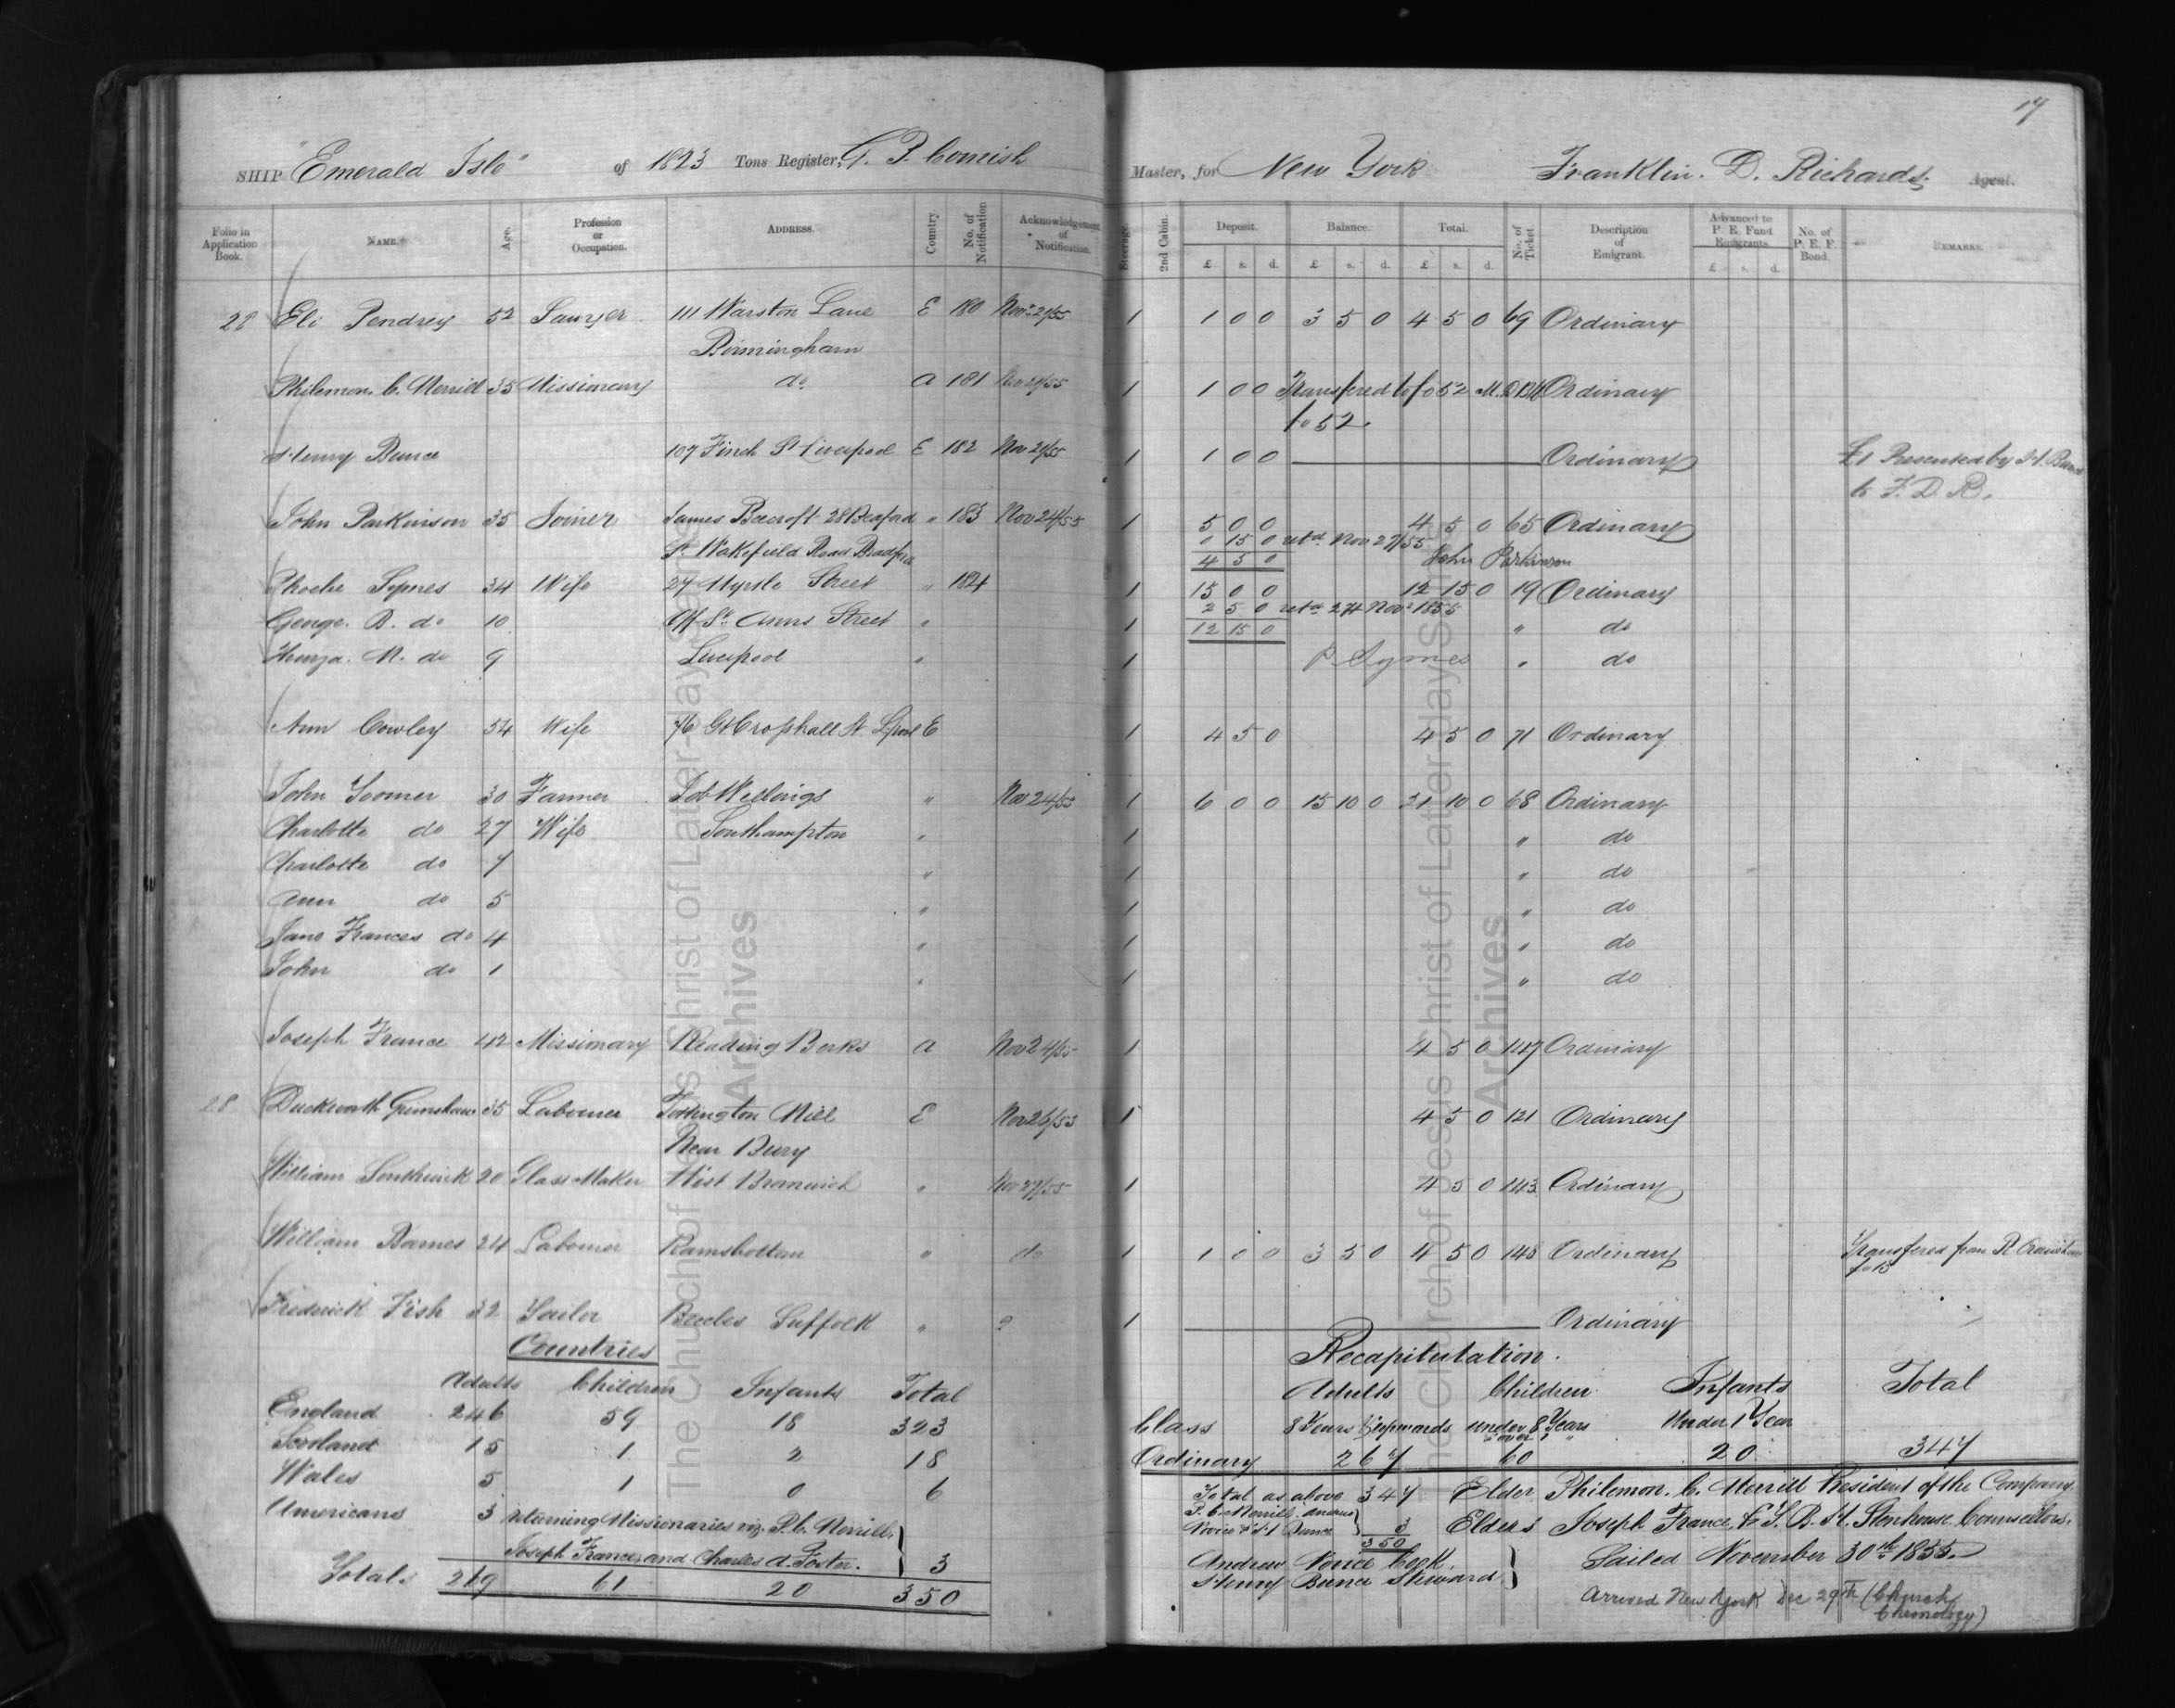 17
SHIP "Emerald Isle" of 1823 Tons Register, G. P. Cornish Master, for New York Franklin. D. Richards, Agent.
Folio in Application Book. NAME. Age. Profession or Occupation. ADDRESS. Country. No. of Notification Acknowledgement of Notification. Steerage. 2nd Cabin. Deposit. Balance. Total. No. of Ticket. Description of Emigrant. Advanced to P. E. Fund Emigrants. No. of P. E. F. Bond. REMARKS.
£. s. d. £. s. d. £. s. d. £. s. d.
28 Eli Pendrey 52 Sawyer 111 Warston Lane E 180 Nov 21/55 1 1 0 0 3 5 0 4 5 0 69 Ordinary
Birmingham
Philemon. C. Merrill 35 Missionary do a 181 Nov 21/55 1 1 0 0 Transfered to fo 52 Ordinary
fo 52.
Henry Bunce 107 Finch St Liverpool E 182 Nov 21/55 1 1 0 0 Ordinary £1 Presented by H. Bunce
to F. D. R.
John Parkinson 35 Joiner James Beecroft 28 Bedford " 183 Nov 24/55 1 5 0 0 4 5 0 65 Ordinary
St. Wakefield Road Bradford 0 15 0 retd. Nov 27/55
4 5 0 John Parkinson
Phoebe Symes 34 Wife 27 Myrtle Street " 184 1 15 0 0 12 15 0 19 Ordinary
2 5 0 retd 27th Nov 1855
George. B. do 10 Off St. Anns Street " 1 12 15 0 " do
M. do 9 Liverpool " 1 P Symes " do
Ann Cowley 54 Wife 76 Gt Crosshall St. Lpool E 1 4 5 0 4 5 0 71 Ordinary
John Toomer 30 Farmer Job Wellings " Nov 24/55 1 6 0 0 15 10 0 21 10 0 68 Ordinary
Charlotte do 27 Wife Southampton " 1 " do
Charlotte do 7 " 1 " do
Ann do 5 " 1 " do
Jane Frances do 4 " 1 " do
John do 1 " 1 " do
Joseph France 42 Missionary Reading Berks a Nov 24/55 1 4 5 0 147 Ordinary
28 Duckworth Grimshaw 35 Labourer Tottington Mill E Nov 26/55 1 4 5 0 121 Ordinary
Near Bury
William Southwick 20 Glass Maker West Bromwich " Nov 27/55 1 4 5 0 143 Ordinary
William Barnes 24 Labourer Ramsbottom " do 1 1 0 0 3 5 0 4 5 0 148 Ordinary Transfered from R
fo 15
Frederick Fish 32 Sailor Beccles Suffolk " ? 1 Ordinary
Countries
Adults Children Infants Total
England 246 59 18 323
Scotland 15 1 2 18
Wales 5 1 0 6
Americans 3 returning Missionaries viz. P. C. Merrill,
Joseph France, and Charles A. Foster. } 3
Totals 269 61 20 350
Recapitulation.
Adults Children Infants Total
Class 8 Years & upwards under 8 Years Under 1 Year
& over 1 "
Ordinary 267 60 20 347
Total as above 347 Elder Philemon. C. Merrill President of the Company
P. C. Merrill. Andrew
Noice & H Bunce } 3 Elders Joseph France, & T. B. H. Stenhouse Counsellors.
350
Andrew Noice Cook. } Sailed November 30th 1855.
Henry Bunce Steward
Arrived New York Dec 29th (Church
Chronology)
The Church of Jesus Christ of Latter-day Saints
Archives
The Church of Jesus Christ of Latter-day Saints
Archives